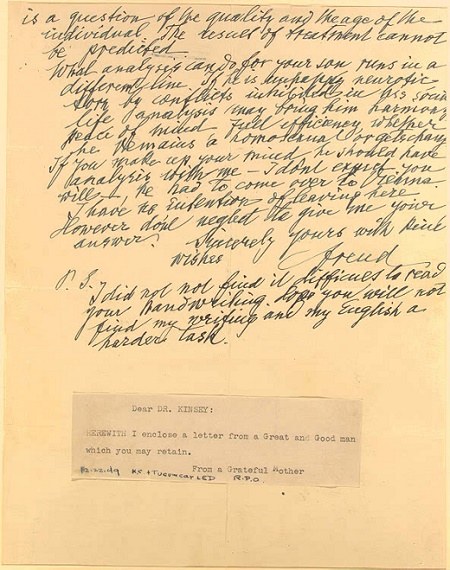 is a question of the quality and the age of the
individual. The result of treatment cannot
be predicted.
What analysis can do for your son runs in a
different line. If he is unhappy, neurotic
torn by conflicts, inhibited in his social
life analysis may bring him harmony
peace of mind full efficiency whether
he remains a homosexual or gets changed
If you make up your mind, he should have
analysis with me — I dont expect you
will —, he had to come over to Vienna.
I have no intention of leaving here.
However dont neglect to give me your
answer.
Sincerely yours with kind
wishes
Freud
P. S. I did not not find it difficult to read
your handwriting. Hope you will not
find my writing and my English a
harder task.
Dear DR. KINSEY:
HEREWITH I enclose a letter from a Great and Good man
which you may retain.
From a Grateful Mother